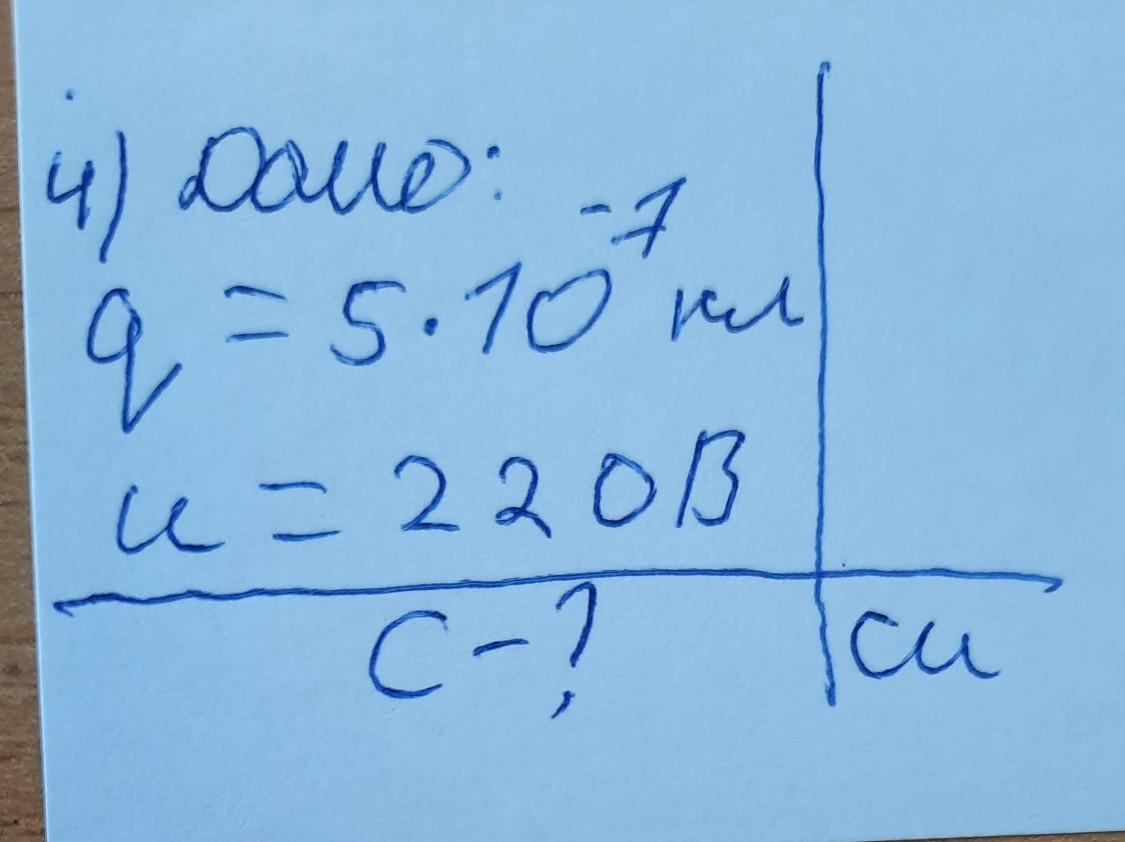 4) Дано:
q = 5·10⁻⁷ кл
u = 220В
C - ?
си